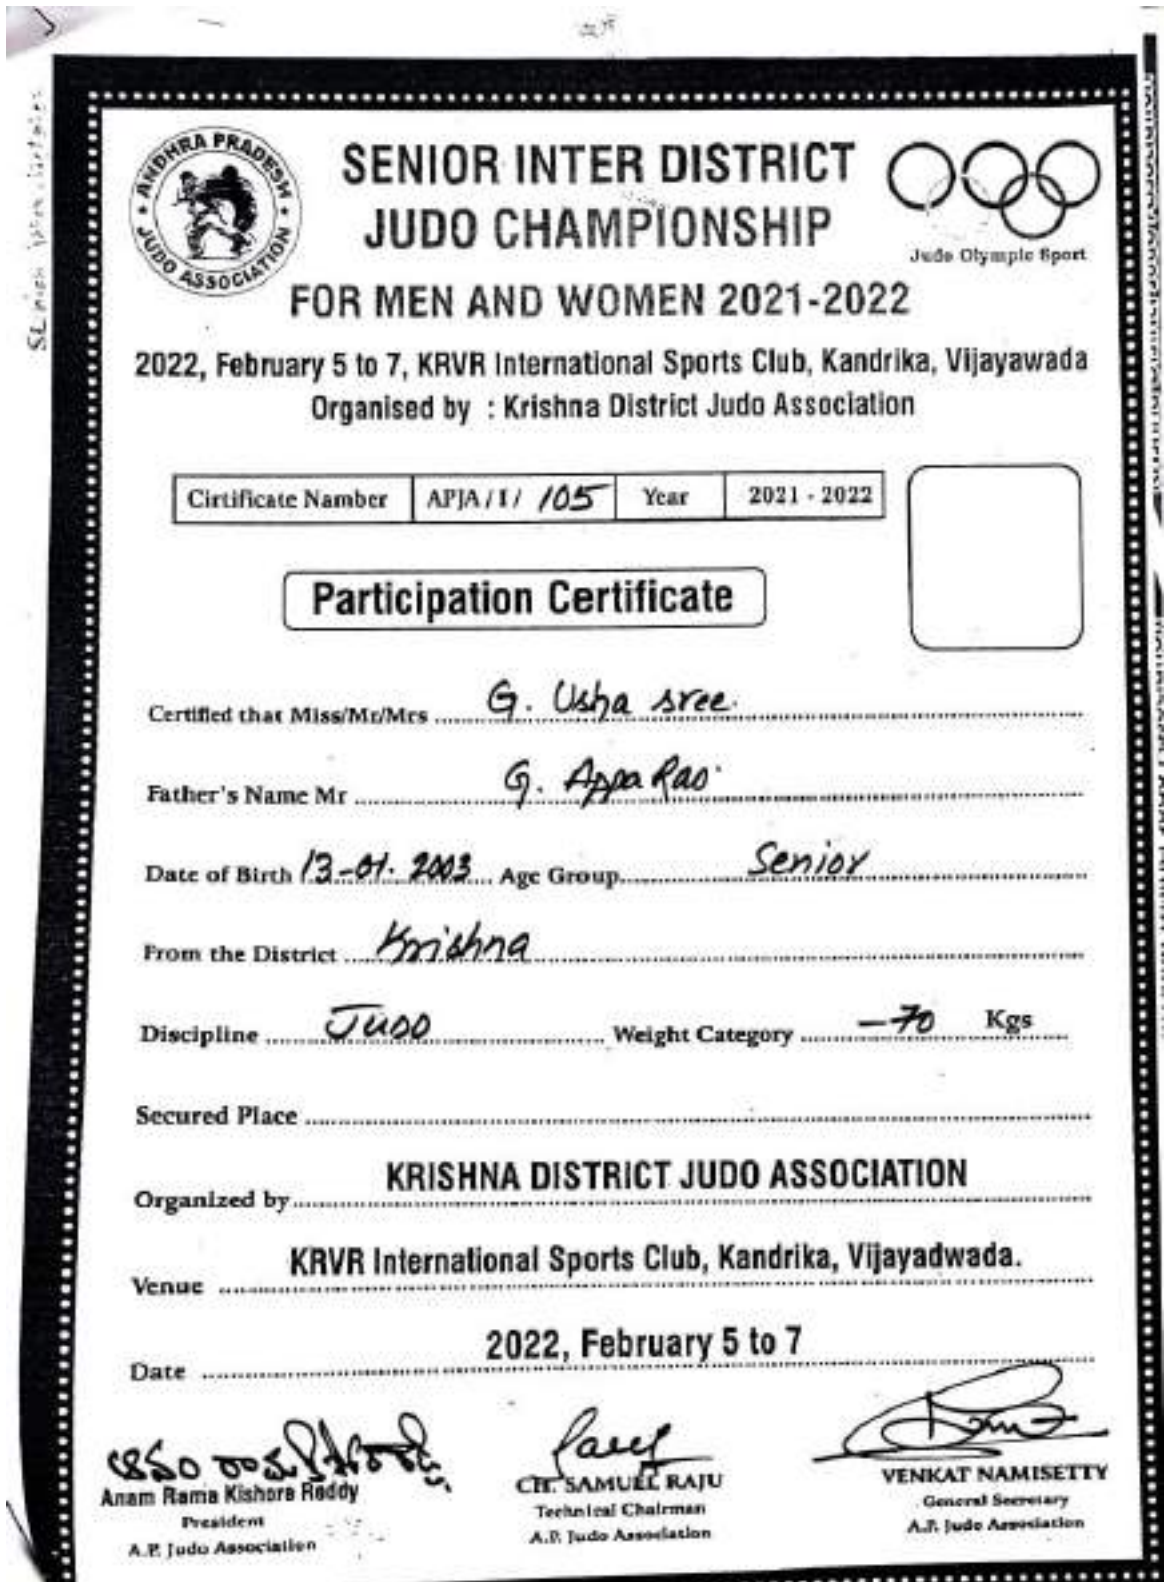 ANDHRA PRADESH
JUDO ASSOCIATION
SENIOR INTER DISTRICT
JUDO CHAMPIONSHIP
Judo Olympic Sport
FOR MEN AND WOMEN 2021-2022
2022, February 5 to 7, KRVR International Sports Club, Kandrika, Vijayawada
Organised by : Krishna District Judo Association
Cirtificate Namber APJA / I / 105 Year 2021 - 2022
Participation Certificate
Certified that Miss/Mr/Mrs G. Usha sree.
Father's Name Mr G. Appa Rao
Date of Birth 13-01-2003 Age Group Senior
From the District Krishna
Discipline JUDO Weight Category -70 Kgs
Secured Place
Organized by KRISHNA DISTRICT JUDO ASSOCIATION
Venue KRVR International Sports Club, Kandrika, Vijayadwada.
Date 2022, February 5 to 7
ఆనం రామ
Anam Rama Kishore Reddy
President
A.P. Judo Association
CH. SAMUEL RAJU
Technical Chairman
A.P. Judo Association
VENKAT NAMISETTY
General Secretary
A.P. Judo Association